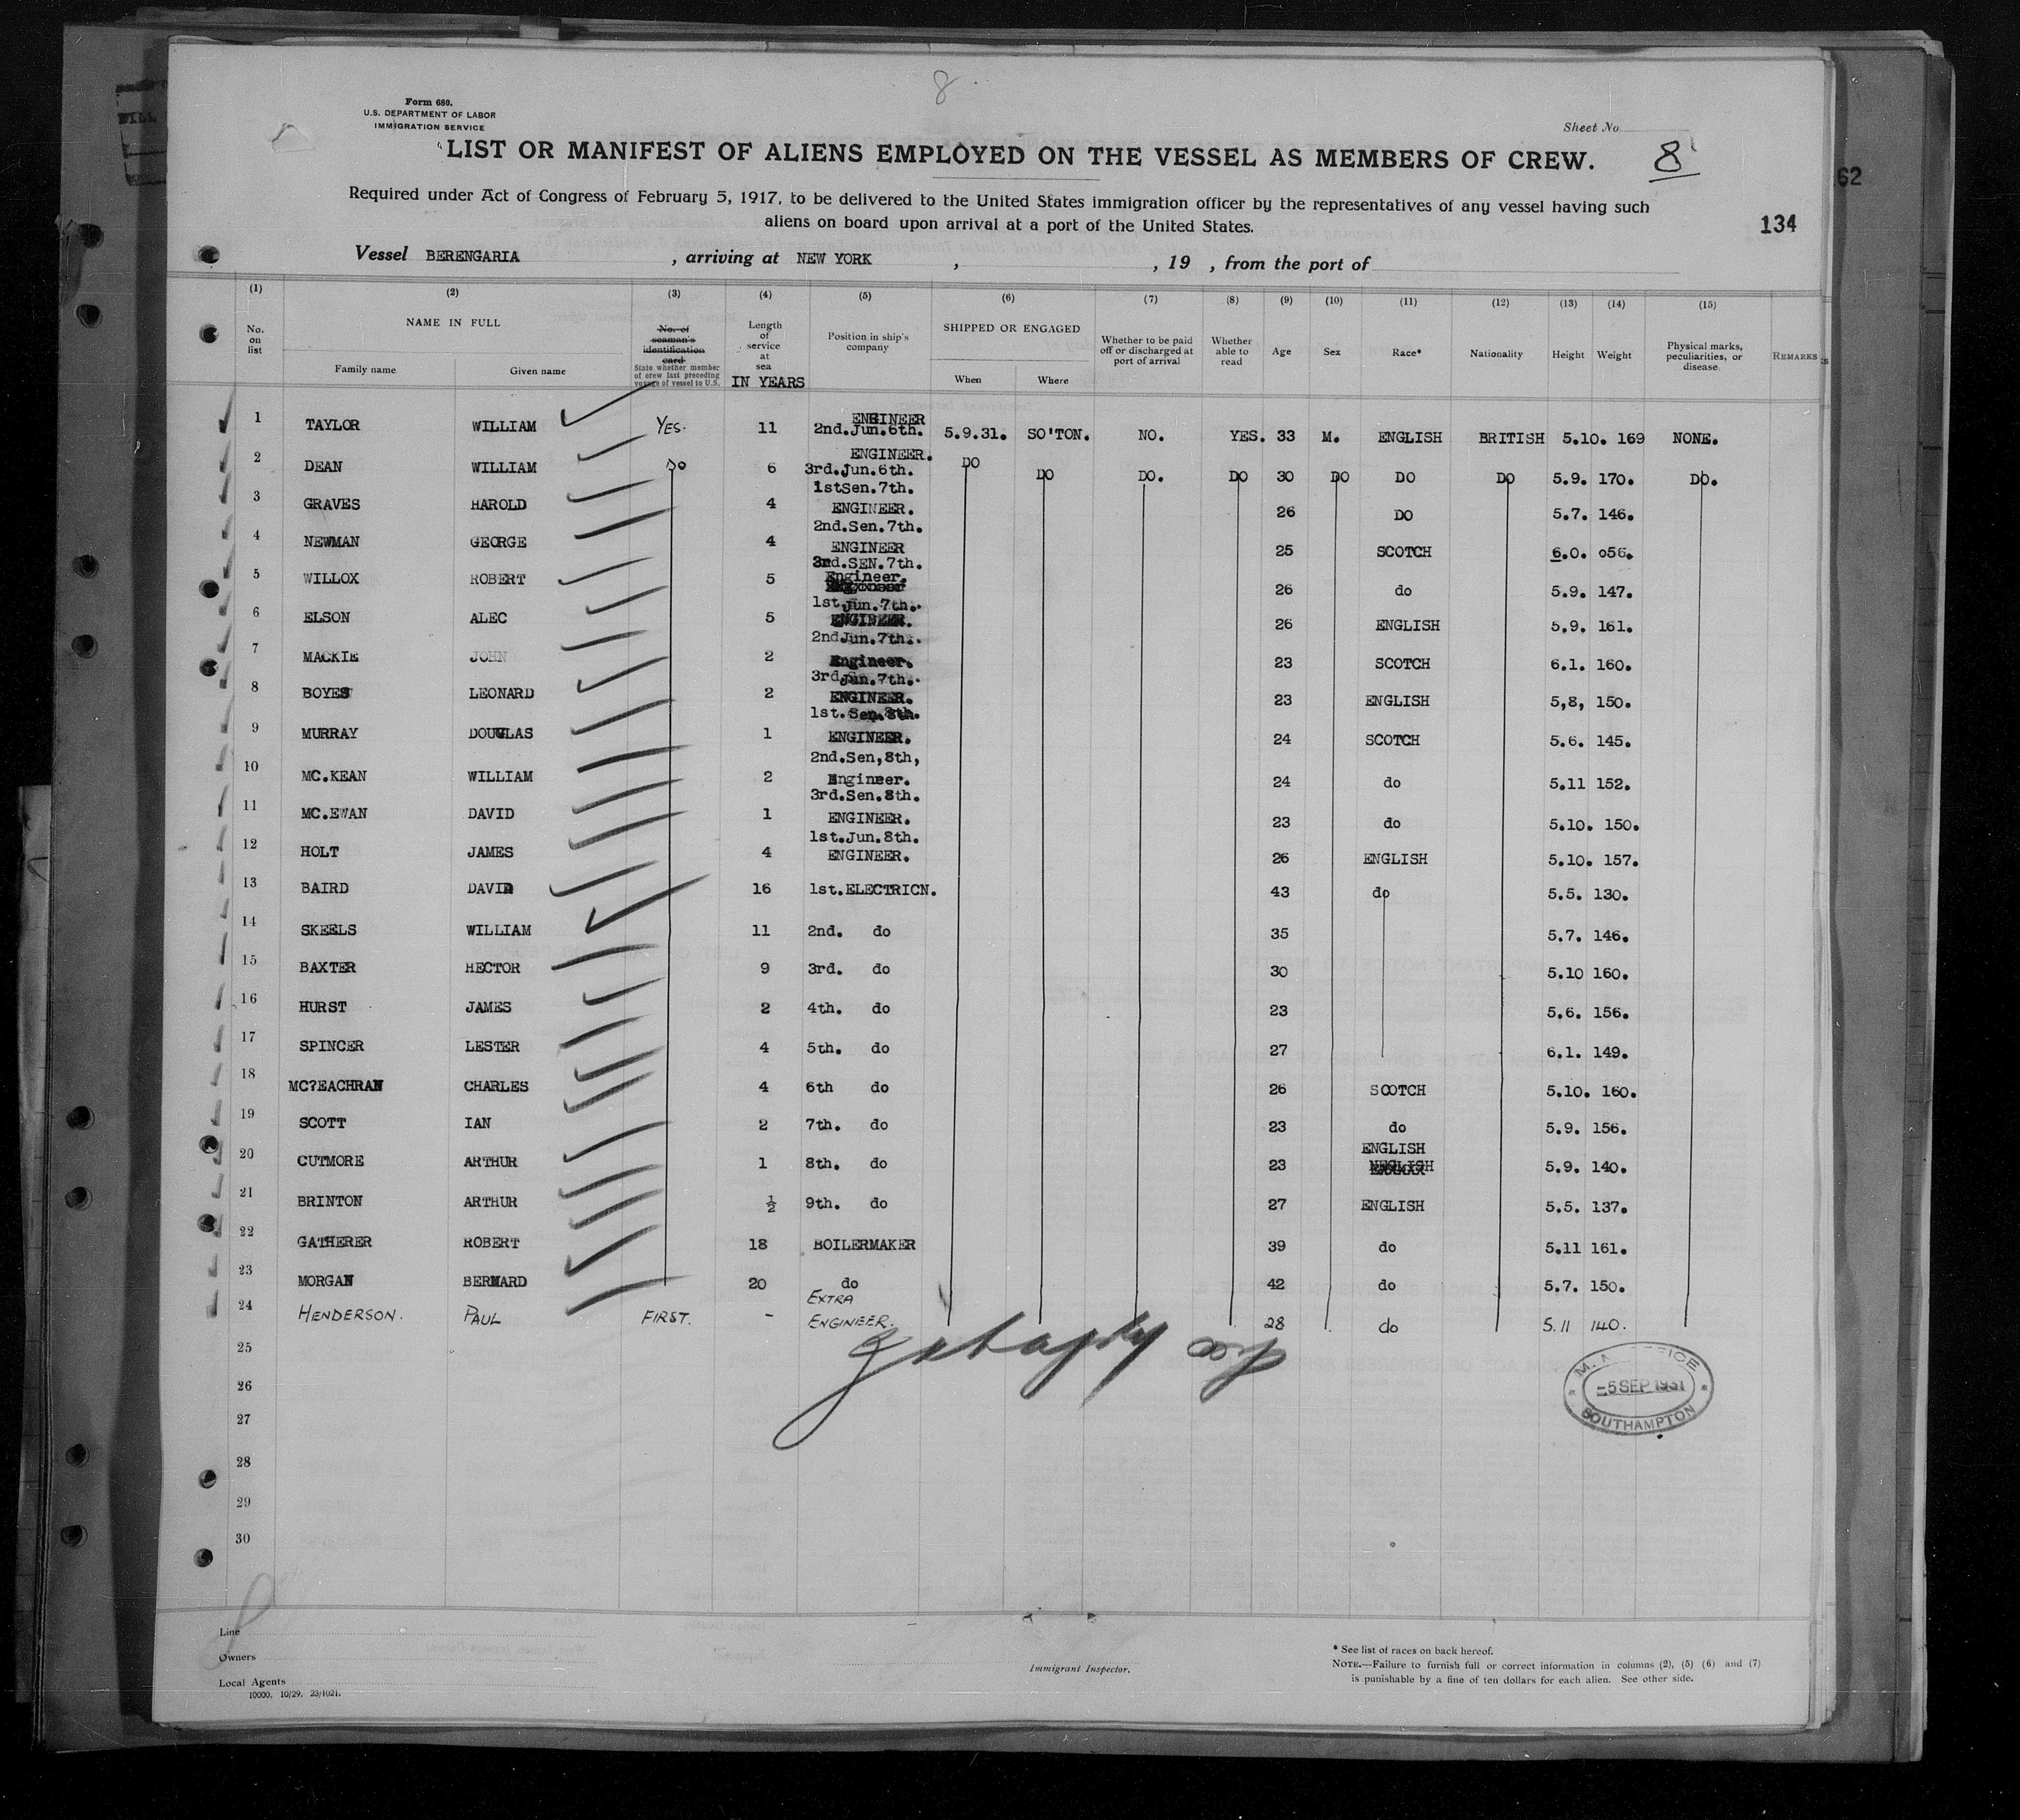 8
Form 680.
U.S. DEPARTMENT OF LABOR
IMMIGRATION SERVICE
Sheet No.
LIST OR MANIFEST OF ALIENS EMPLOYED ON THE VESSEL AS MEMBERS OF CREW.
8
62
Required under Act of Congress of February 5, 1917, to be delivered to the United States immigration officer by the representatives of any vessel having such
aliens on board upon arrival at a port of the United States.
134
Vessel BERENGARIA, arriving at NEW YORK, , 19 , from the port of
(1) (2) (3) (4) (5) (6) (7) (8) (9) (10) (11) (12) (13) (14) (15)
No. on list
NAME IN FULL
Family name
Given name
No. of seaman's identification card
State whether member of crew last preceding voyage of vessel to U.S.
Length of service at sea
IN YEARS
Position in ship's company
SHIPPED OR ENGAGED
When
Where
Whether to be paid off or discharged at port of arrival
Whether able to read
Age
Sex
Race*
Nationality
Height
Weight
Physical marks, peculiarities, or disease.
REMARKS
1 TAYLOR WILLIAM YES. 11 2nd.Jun.6th. ENGINEER 5.9.31. SO'TON. NO. YES. 33 M. ENGLISH BRITISH 5.10. 169 NONE.
2 DEAN WILLIAM DO 6 3rd.Jun.6th. ENGINEER. DO DO DO. DO 30 DO DO DO 5.9. 170. DO.
3 GRAVES HAROLD 4 1stSen.7th. ENGINEER. 26 DO 5.7. 146.
4 NEWMAN GEORGE 4 2nd.Sen.7th. ENGINEER 25 SCOTCH 6.0. 056.
5 WILLOX ROBERT 5 3rd.SEN.7th. Engineer. 26 do 5.9. 147.
6 ELSON ALEC 5 1st.Jun.7th. ENGINEER. 26 ENGLISH 5.9. 161.
7 MACKIE JOHN 2 2nd.Jun.7th. Engineer. 23 SCOTCH 6.1. 160.
8 BOYES LEONARD 2 3rd.Jun.7th. ENGINEER. 23 ENGLISH 5,8, 150.
9 MURRAY DOUGLAS 1 1st.Sen.8th. ENGINEER. 24 SCOTCH 5.6. 145.
10 MC.KEAN WILLIAM 2 2nd.Sen,8th, Engineer. 24 do 5.11 152.
11 MC.EWAN DAVID 1 3rd.Sen.8th. ENGINEER. 23 do 5.10. 150.
12 HOLT JAMES 4 1st.Jun.8th. ENGINEER. 26 ENGLISH 5.10. 157.
13 BAIRD DAVID 16 1st.ELECTRICN. 43 do 5.5. 130.
14 SKEELS WILLIAM 11 2nd. do 35 5.7. 146.
15 BAXTER HECTOR 9 3rd. do 30 5.10 160.
16 HURST JAMES 2 4th. do 23 5.6. 156.
17 SPINCER LESTER 4 5th. do 27 6.1. 149.
18 MC?EACHRAN CHARLES 4 6th do 26 SCOTCH 5.10. 160.
19 SCOTT IAN 2 7th. do 23 do 5.9. 156.
20 CUTMORE ARTHUR 1 8th. do 23 ENGLISH 5.9. 140.
21 BRINTON ARTHUR ½ 9th. do 27 ENGLISH 5.5. 137.
22 GATHERER ROBERT 18 BOILERMAKER 39 do 5.11 161.
23 MORGAN BERNARD 20 do 42 do 5.7. 150.
24 HENDERSON. PAUL FIRST. - EXTRA ENGINEER. 28 do 5.11 140.
25
26
27
28
29
30
-5 SEP 1931
SOUTHAMPTON
Line
Owners
Local Agents
10000. 10/29. 23/1021.
Immigrant Inspector.
* See list of races on back hereof.
NOTE.—Failure to furnish full or correct information in columns (2), (5) (6) and (7)
is punishable by a fine of ten dollars for each alien. See other side.